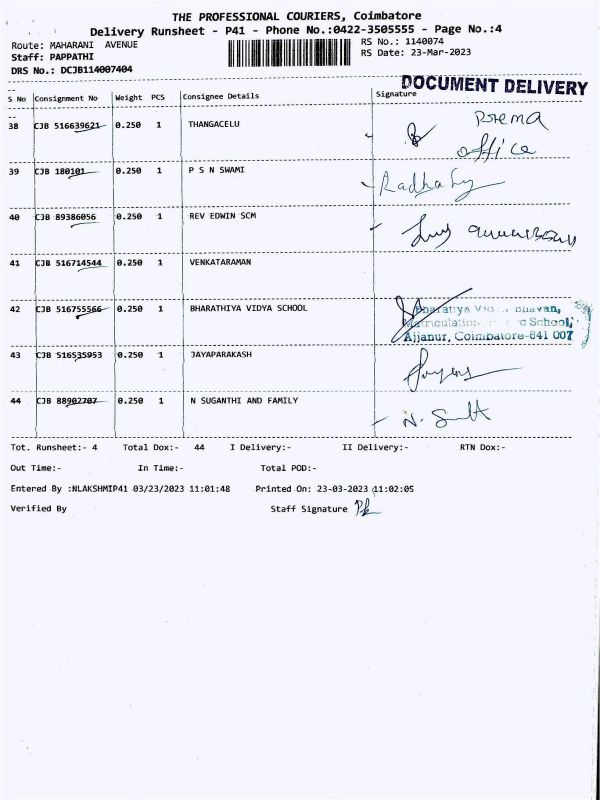 THE PROFESSIONAL COURIERS, Coimbatore
Delivery Runsheet - P41 - Phone No.:0422-3505555 - Page No.:4
Route: MAHARANI AVENUE
RS No.: 1140074
Staff: PAPPATHI
RS Date: 23-Mar-2023
DRS No.: DCJB114007404
DOCUMENT DELIVERY
S No Consignment No Weight PCS Consignee Details Signature
38 CJB 516639621 0.250 1 THANGACELU Prema
office
39 CJB 180101 0.250 1 P S N SWAMI Radha
40 CJB 89386056 0.250 1 REV EDWIN SCM
41 CJB 516714544 0.250 1 VENKATARAMAN
42 CJB 516755566 0.250 1 BHARATHIYA VIDYA SCHOOL Bharatiya Bhavan,
Matriculation School,
Ajjanur, Coimbatore-641 007
43 CJB 516535953 0.250 1 JAYAPARAKASH
44 CJB 88902707 0.250 1 N SUGANTHI AND FAMILY N.
Tot. Runsheet:- 4 Total Dox:- 44 I Delivery:- II Delivery:- RTN Dox:-
Out Time:- In Time:- Total POD:-
Entered By :NLAKSHMIP41 03/23/2023 11:01:48 Printed On: 23-03-2023 11:02:05
Verified By Staff Signature